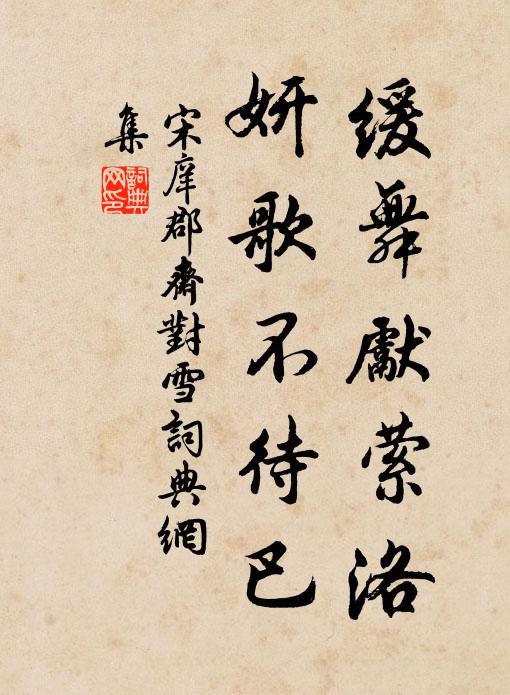 緩舞獻縈洛
妍歌不待巴
宋庠郡齋對雪詞典網
集
詞典
网印